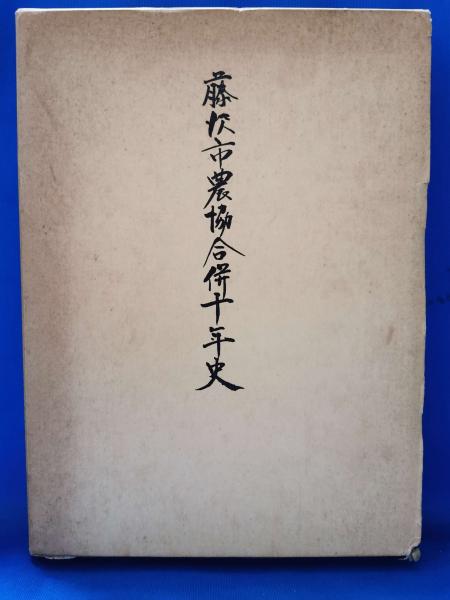 藤沢市農協合併十年史